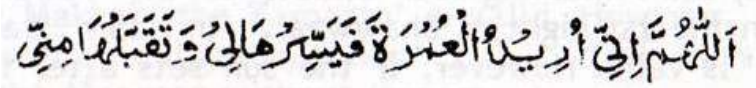 اَللّٰهُمَّ اِنِّیْ اُرِیْدُ الْعُمْرَةَ فَیَسِّرْهَالِیْ وَ تَقَبَّلْهَا مِنِّیْ